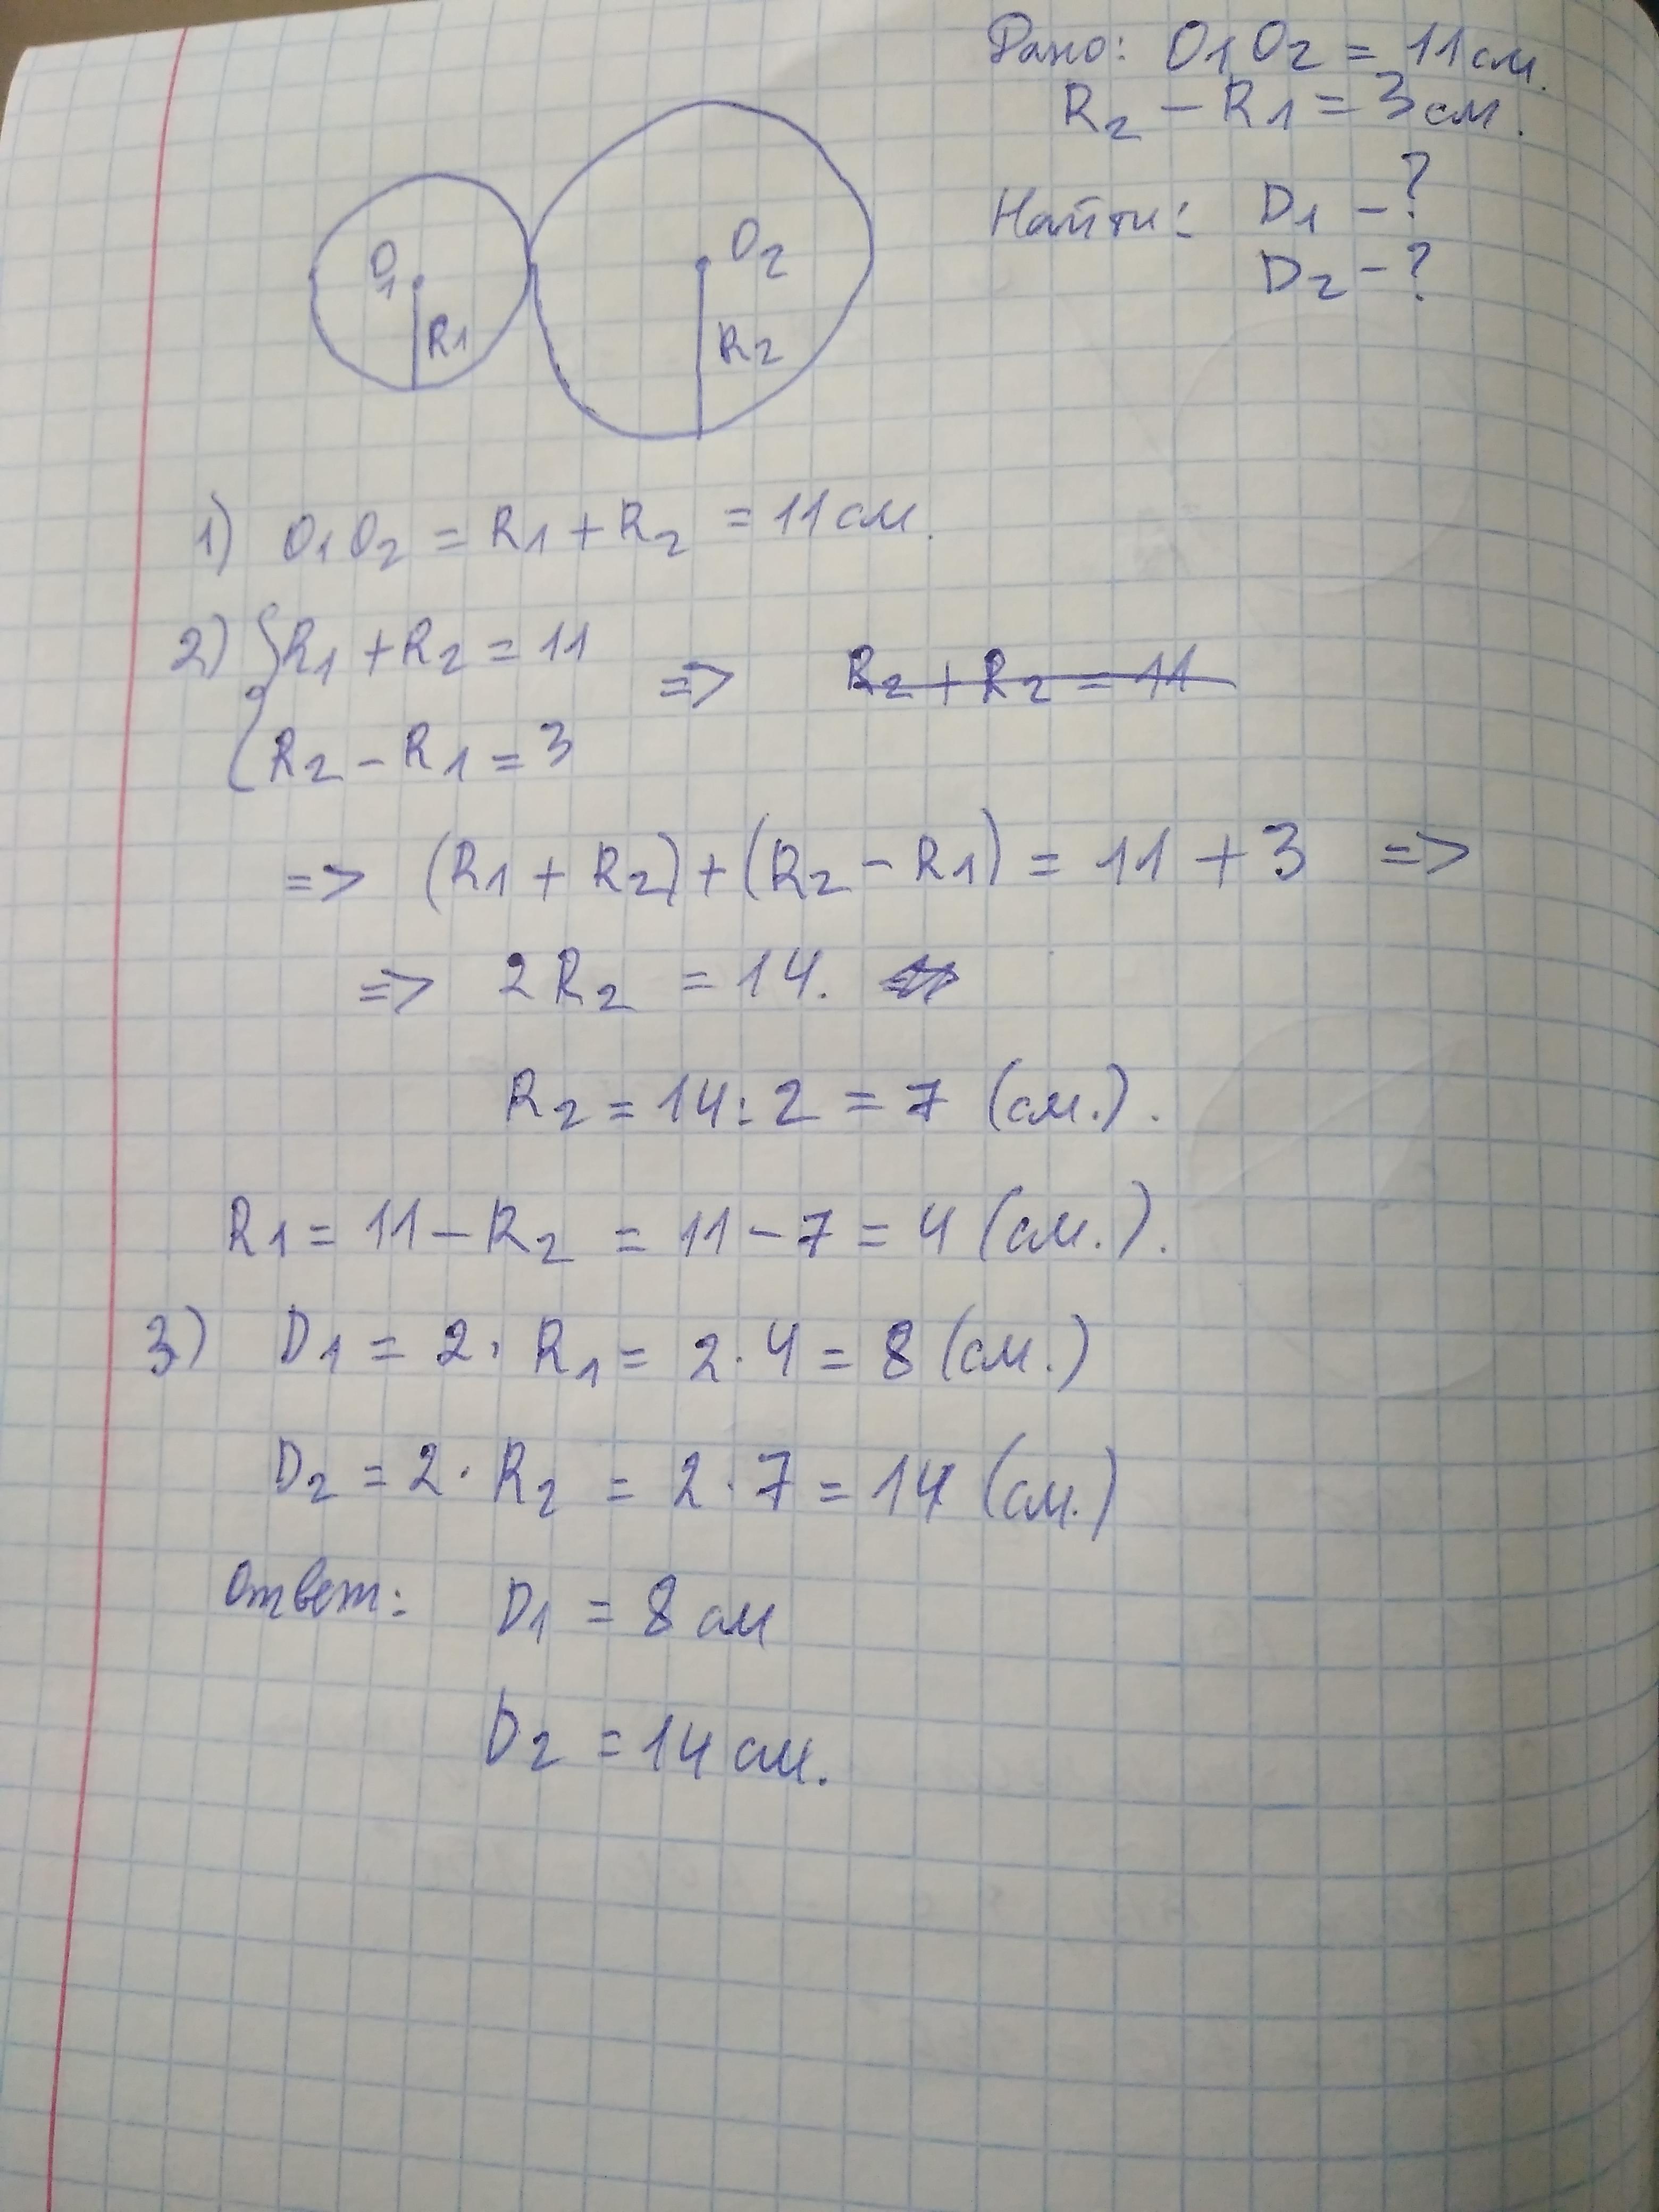 Дано: O1O2 = 11 см.
R2 – R1 = 3 см.
Найти: D1 – ?
D2 – ?
O1
R1
O2
R2
1) O1O2 = R1 + R2 = 11 см.
2) { R1 + R2 = 11
R2 – R1 = 3
=> R2 + R2 = 11
=> (R1 + R2) + (R2 – R1) = 11 + 3 =>
=> 2R2 = 14.
R2 = 14 : 2 = 7 (см.).
R1 = 11 – R2 = 11 – 7 = 4 (см.).
3) D1 = 2 · R1 = 2 · 4 = 8 (см.)
D2 = 2 · R2 = 2 · 7 = 14 (см.)
Ответ: D1 = 8 см
D2 = 14 см.